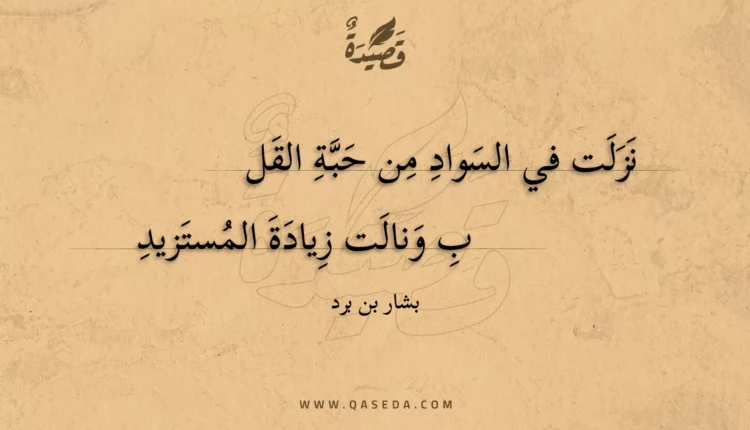 قَصِيْدَةٌ
نَزَلَت في السَوادِ مِن حَبَّةِ القَل
بِ وَنالَت زِيادَةَ المُستَزيدِ
بشار بن برد
WWW.QASEDA.COM